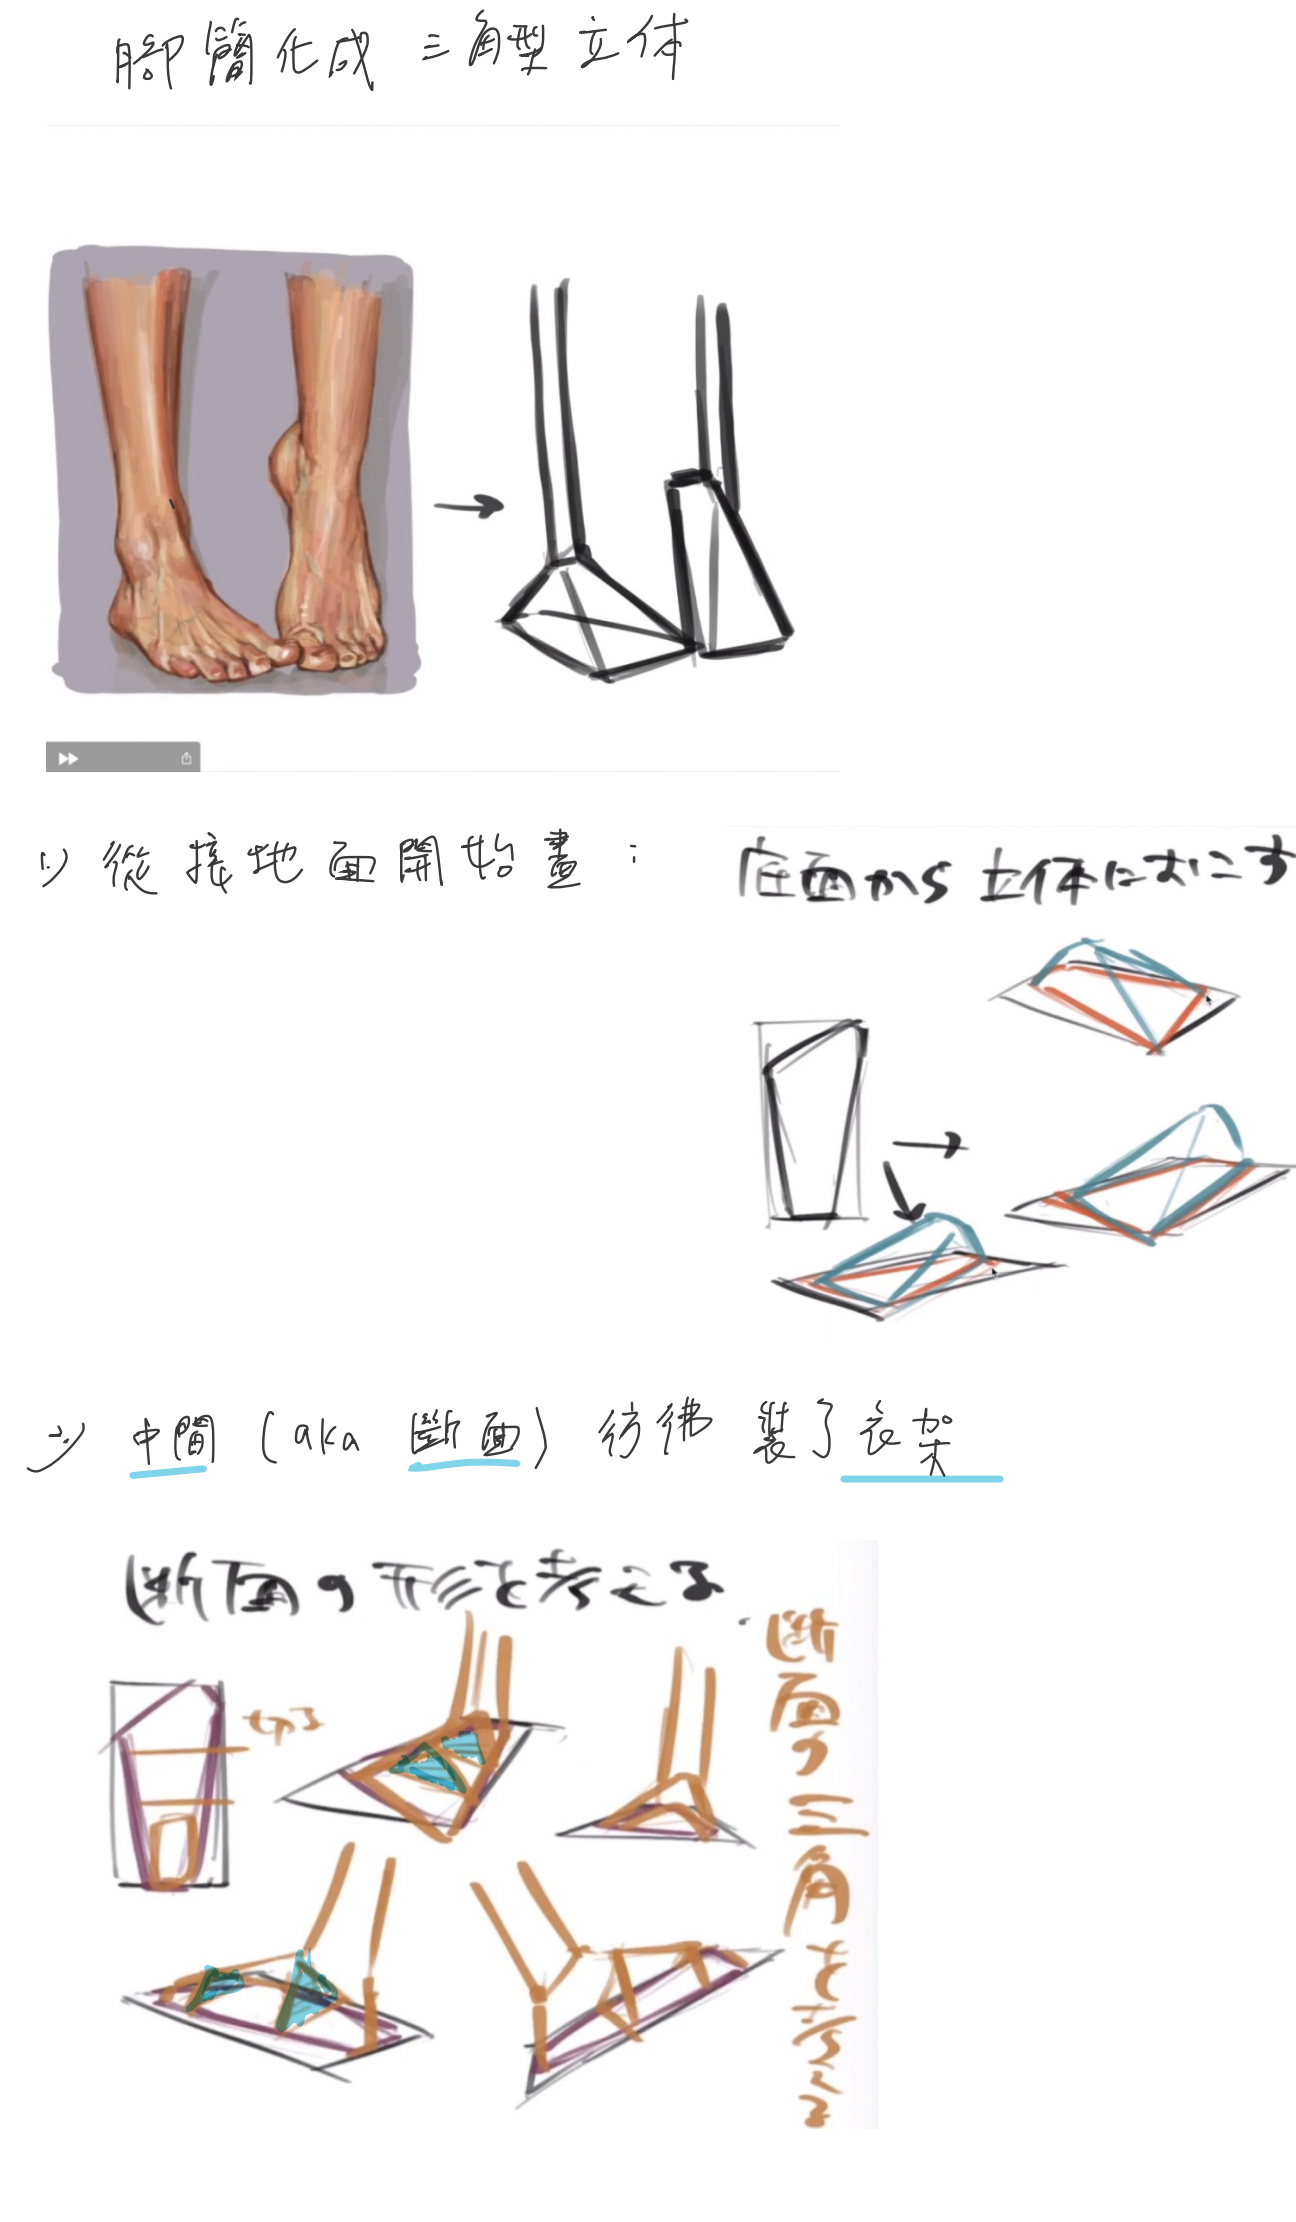 腳簡化成 三角型立体
1) 從接地面開始畫：
底面から立体におこす
2) 中間 (aka 斷面) 彷彿 裝了衣架
断面の形を考える.
切る
断面の三角を考える